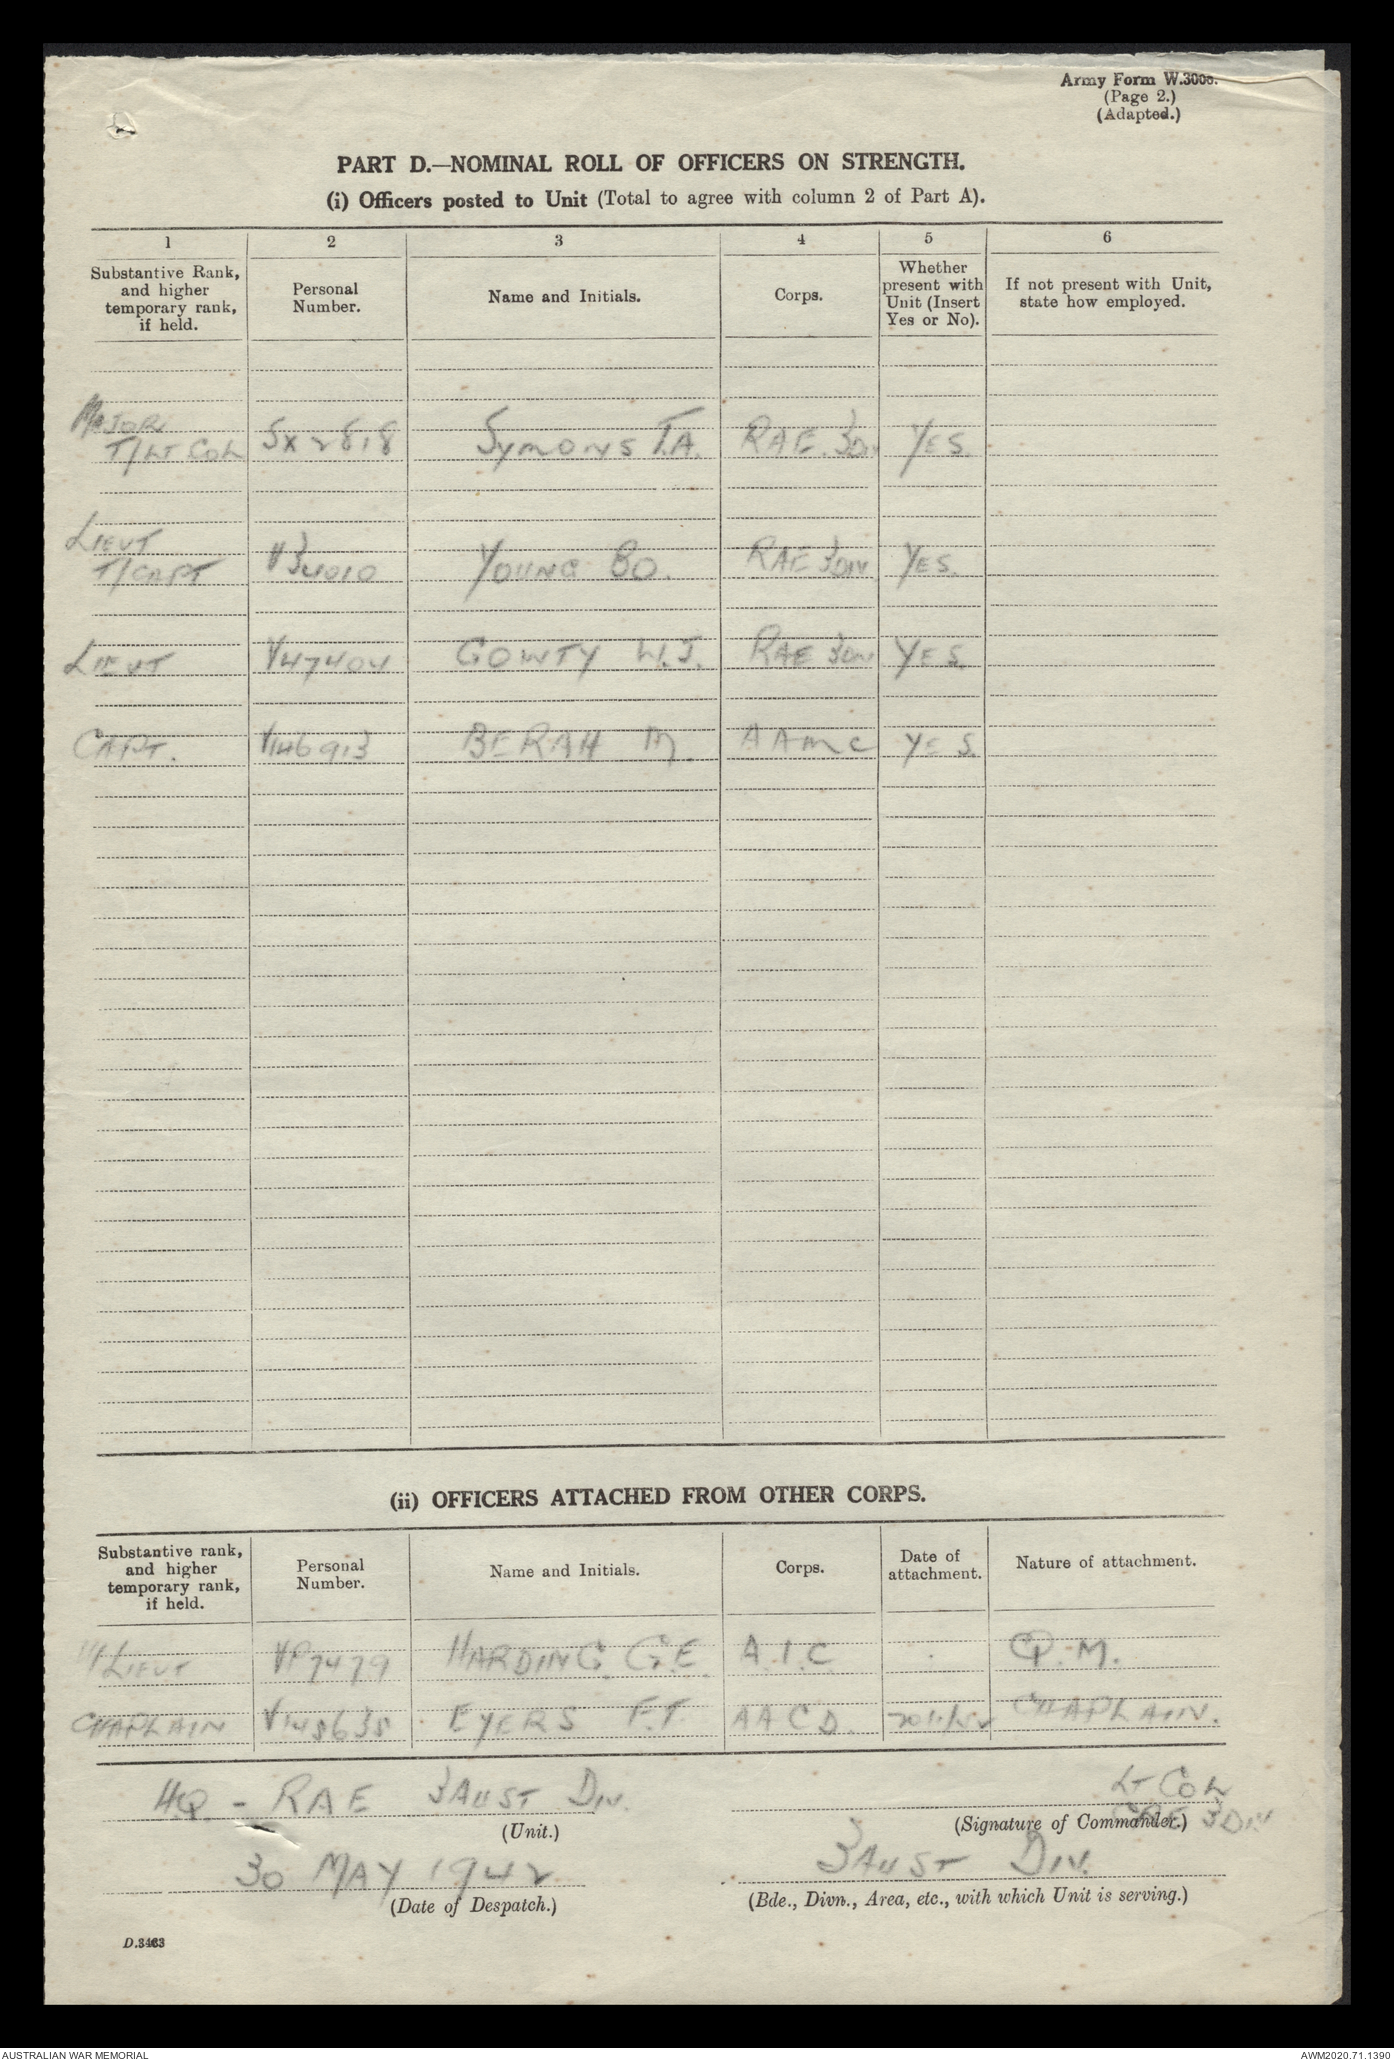 Army Form W.3008.
(Page 2.)
(Adapted.)
PART D.—NOMINAL ROLL OF OFFICERS ON STRENGTH.
(i) Officers posted to Unit (Total to agree with column 2 of Part A).
1 2 3 4 5 6
Substantive Rank, and higher temporary rank, if held. Personal Number. Name and Initials. Corps. Whether present with Unit (Insert Yes or No). If not present with Unit, state how employed.
MAJOR
T/LT COL SX2818 SYMONS T.A. RAE. 3DIV YES.
LIEUT
T/CAPT V34010 YOUNG BO. RAE 3DIV YES.
LIEUT V47404 GOWTY W.J. RAE 3DIV YES.
CAPT. V146913 BERAH M. AAMC YES.
(ii) OFFICERS ATTACHED FROM OTHER CORPS.
Substantive rank, and higher temporary rank, if held. Personal Number. Name and Initials. Corps. Date of attachment. Nature of attachment.
LIEUT VP7479 HARDING. G.E. A.I.C. Q.M.
CHAPLAIN V145635 EYERS F.T. AACD. CHAPLAIN.
HQ - RAE 3 AUST DIV. LT COL
(Unit.) (Signature of Commander.) CRE 3 DIV
30 MAY 1942 3 AUST DIV.
(Date of Despatch.) (Bde., Divn., Area, etc., with which Unit is serving.)
D.3463
AUSTRALIAN WAR MEMORIAL AWM2020.71.1390